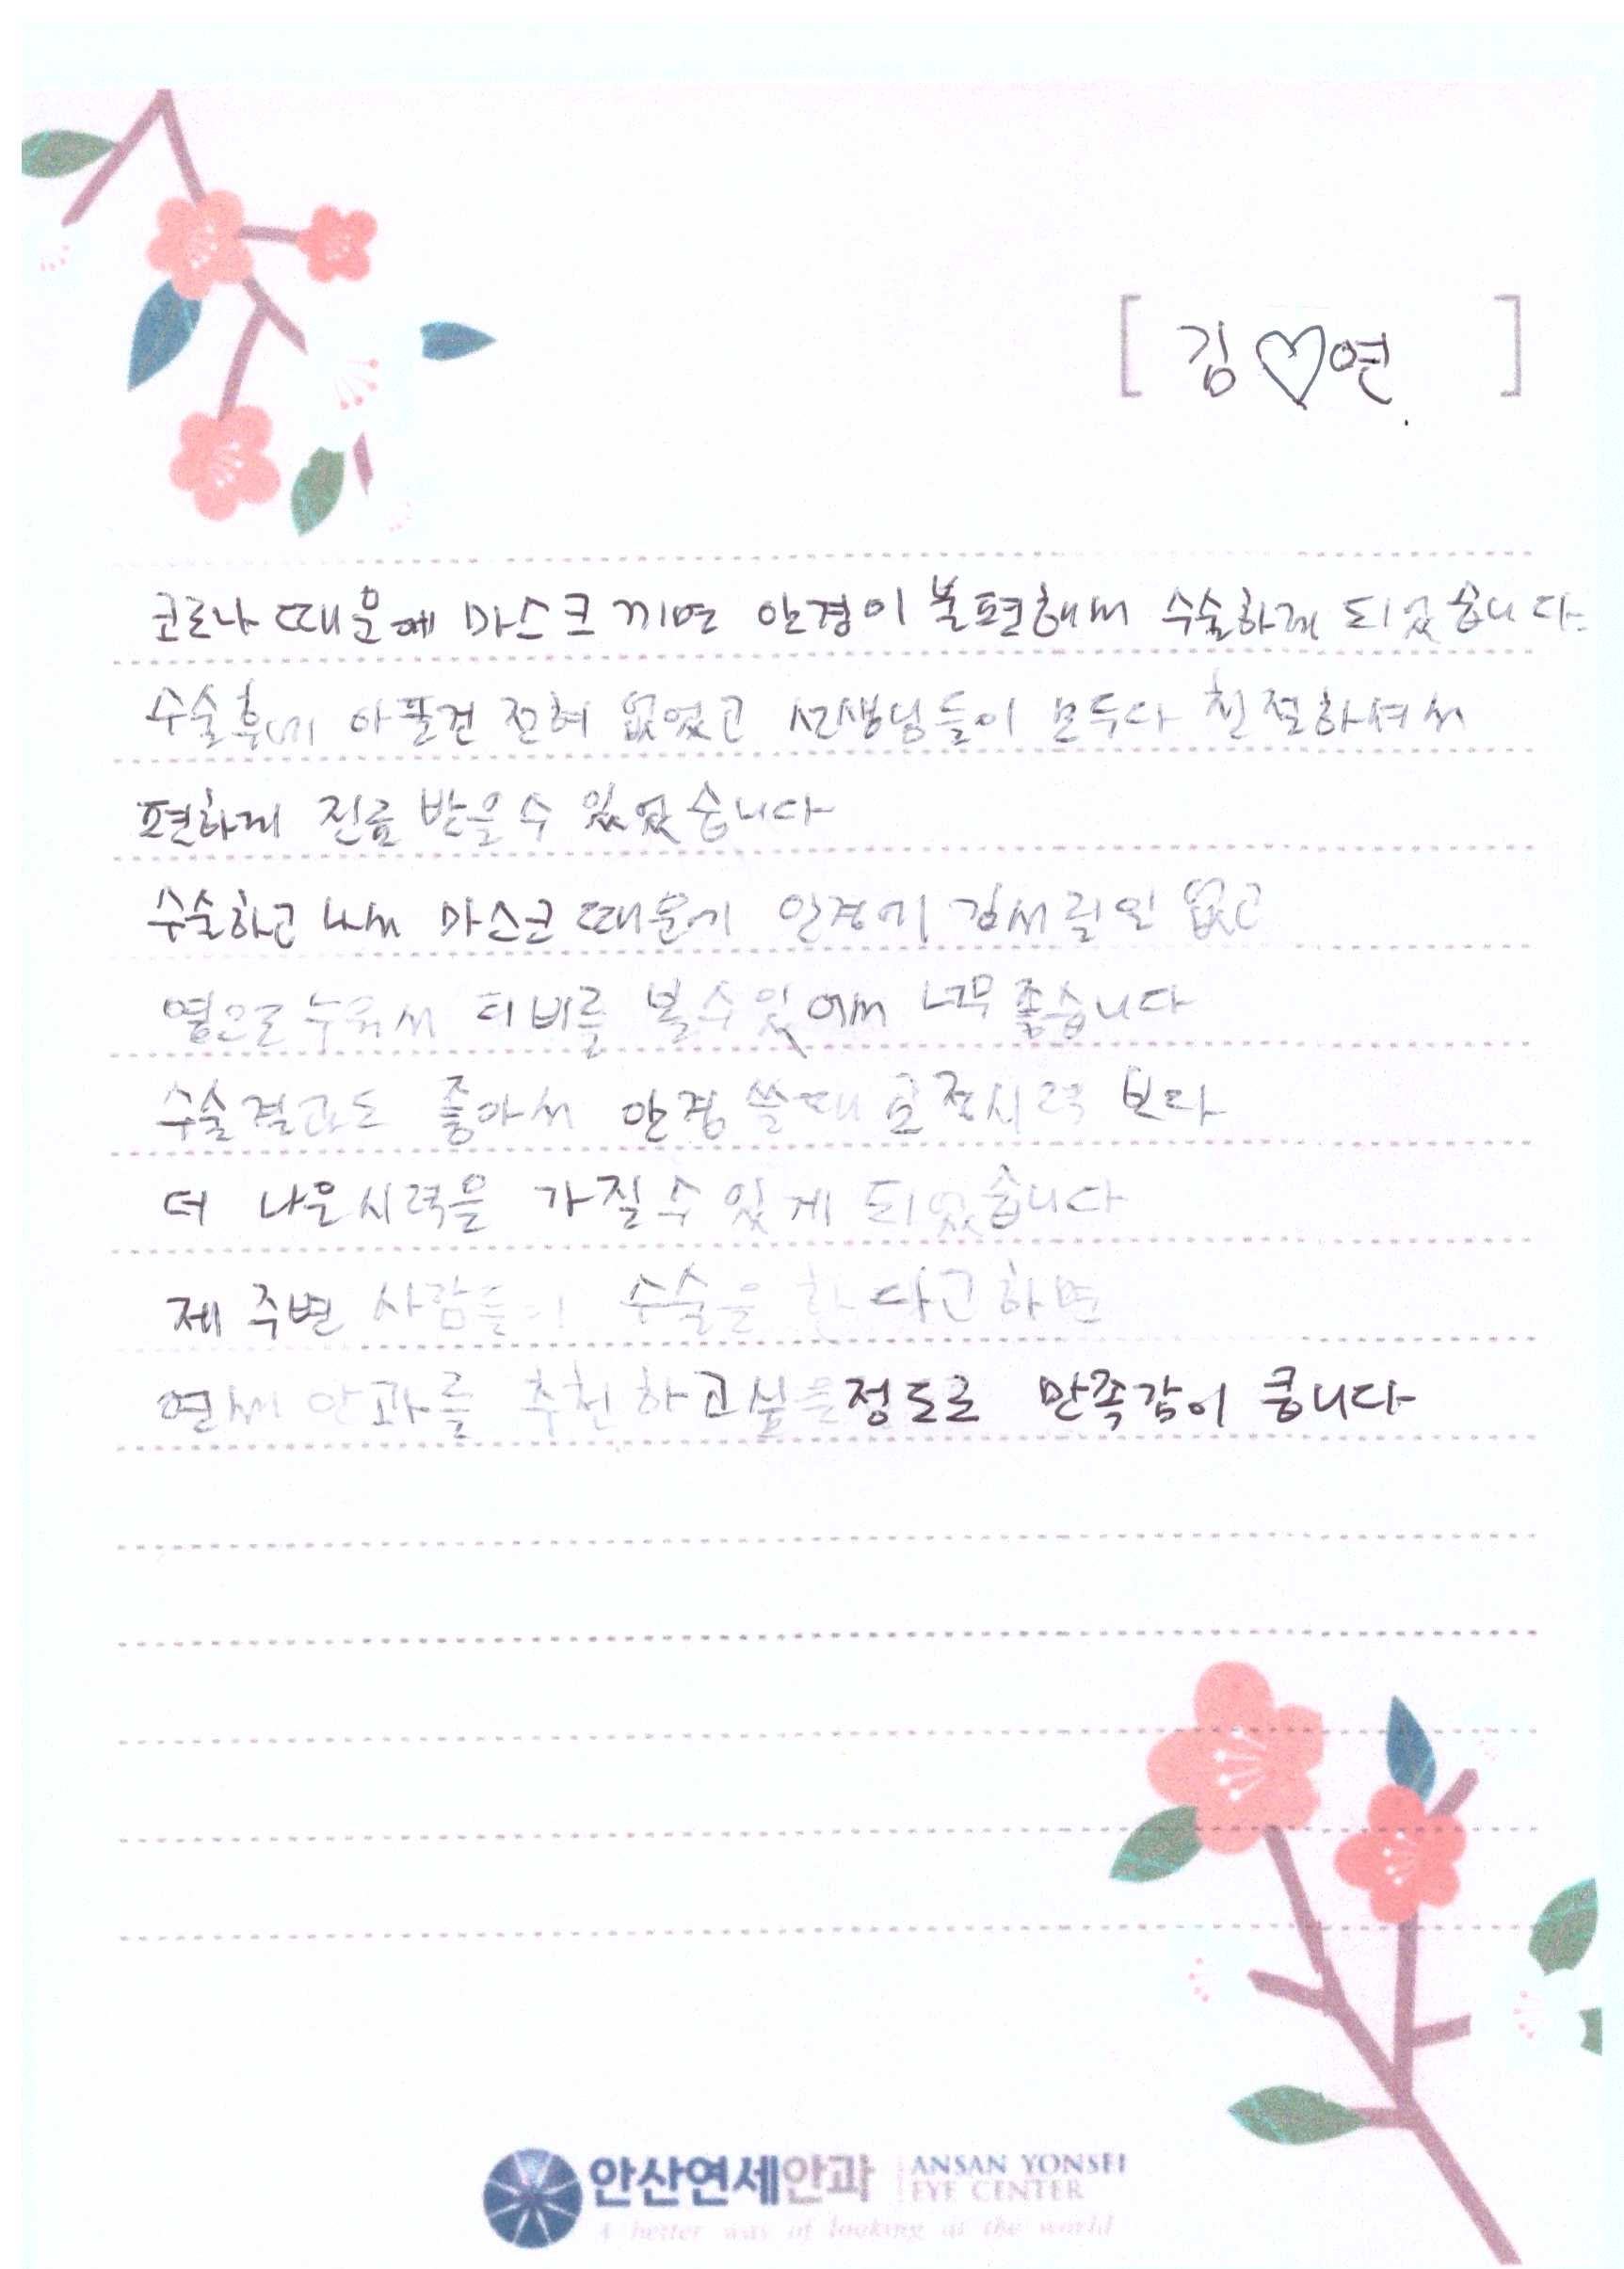 [ 김♡연. ]
코로나 때문에 마스크 끼면 안경이 불편해서 수술하게 되었습니다.
수술후에 아픈건 전혀 없었고 선생님들이 모두다 친절하셔서
편하게 진료 받을수 있었습니다
수술하고 나서 마스크 때문에 안경에 김서릴일 없고
옆으로 누워서 티비를 볼수있어서 너무 좋습니다
수술결과도 좋아서 안경 쓸때 교정시력 보다
더 나은시력을 가질수 있게 되었습니다
제 주변 사람들이 수술을 한다고하면
연세안과를 추천하고싶을정도로 만족감이 큽니다
안산연세안과 ANSAN YONSEI
EYE CENTER
A better way of looking at the world